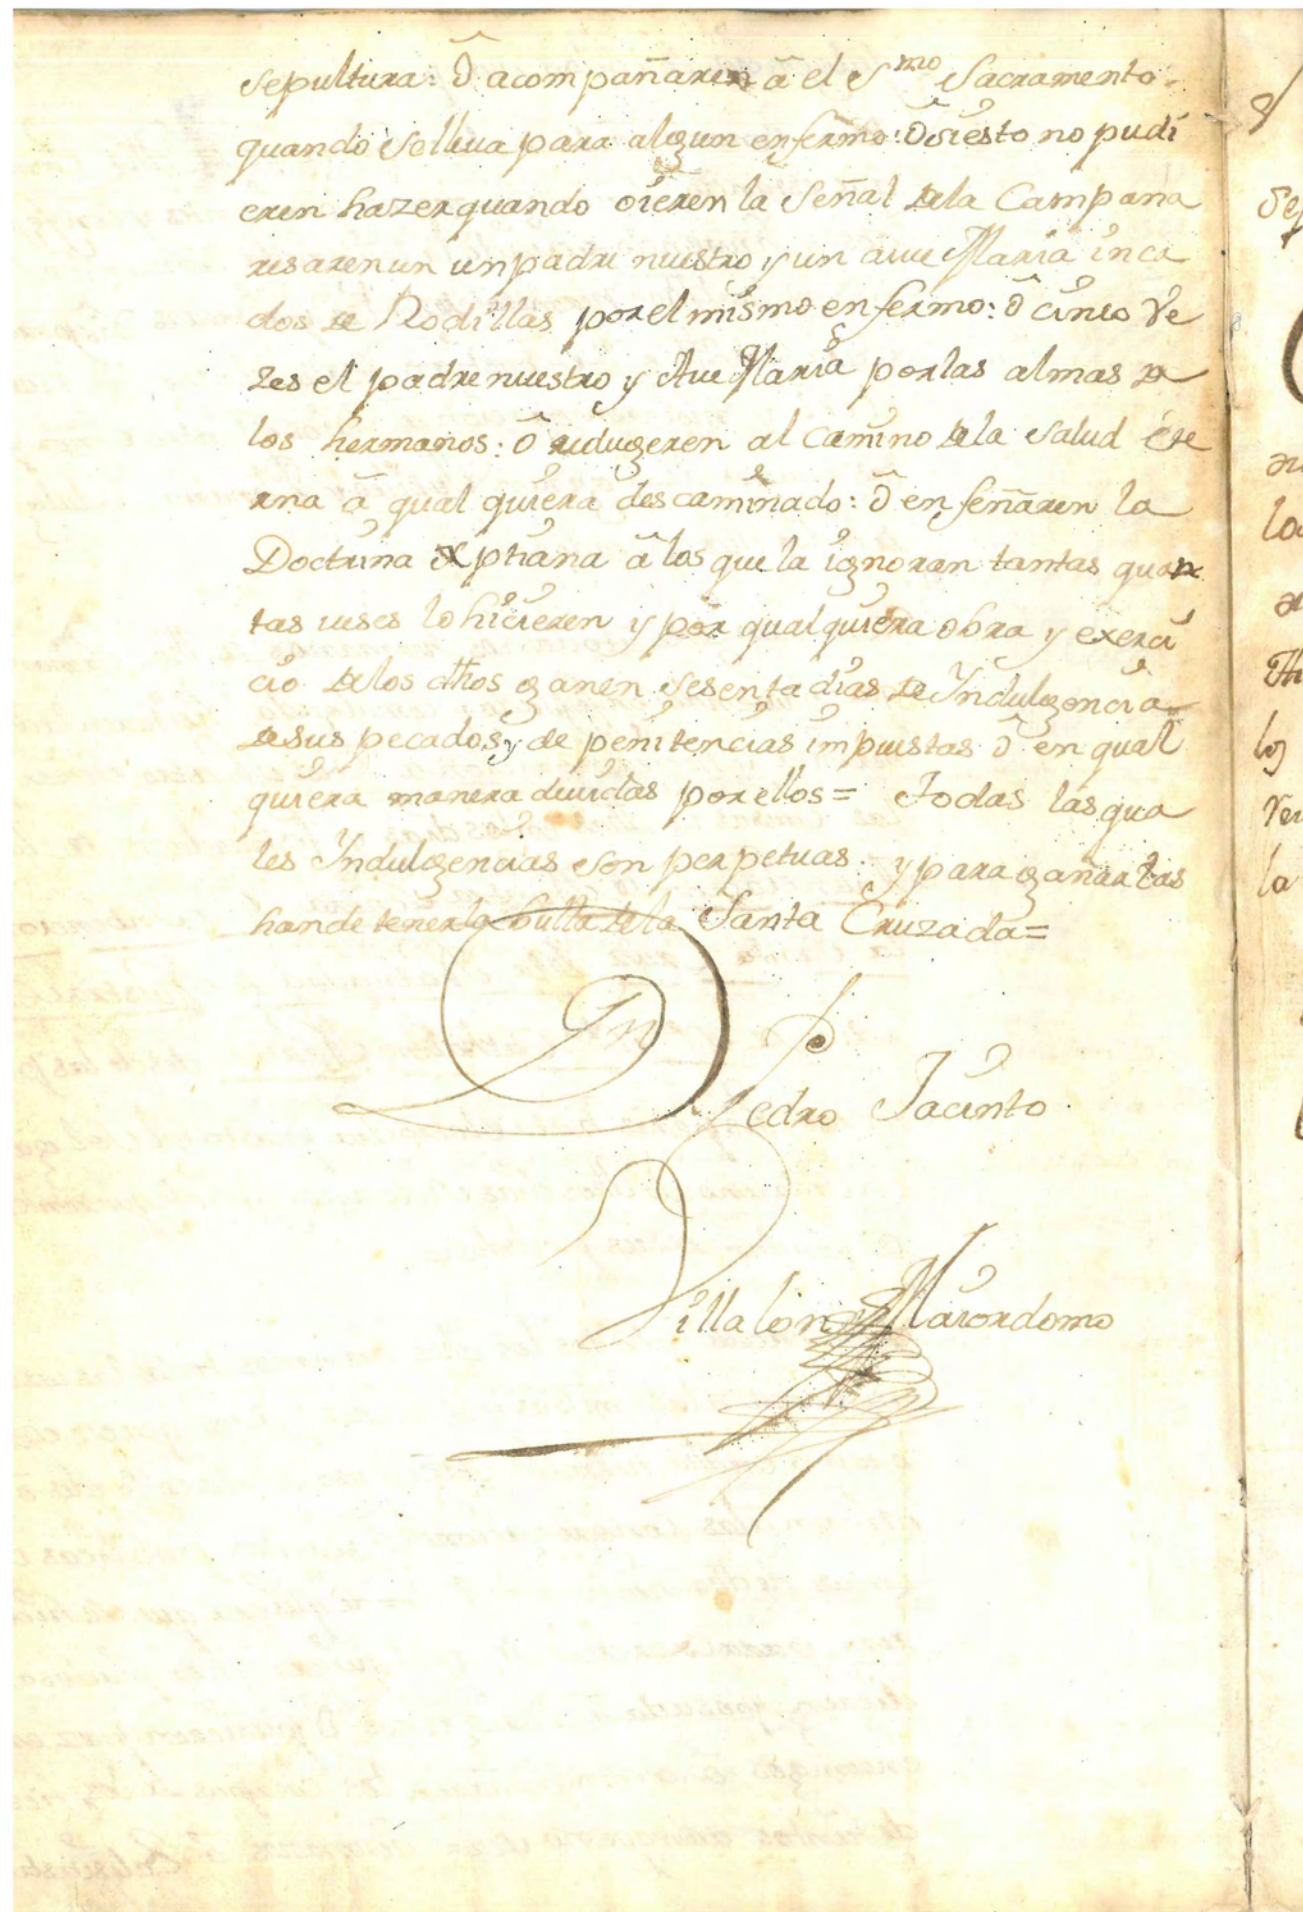 sepultura: ô acompañaren â el Smo Sacramento
quando se lleua para algun enfermo: ô si esto no pudi
eren hazer quando oieren la señal de la Campana
resaren un un padre nuestro y un aue Maria inca
dos de Rodillas por el mismo enfermo: ô cinco Ve
zes el padre nuestro y Aue Maria por las almas de
los hermanos: ô redugeren al camino de la salud Ete
rna â qual quiera descaminado: ô enseñaren la
Doctrina Xptiana â los que la ignoran tantas quan
tas ueses lo hicieren y por qual quiera obra y exerci
cio de los dhos ganen sesenta dias de Yndulgencia
de sus pecados y de penitencias impuestas ô en qual
quiera manera deuidas por ellos = Todas las qua
les Yndulgencias son perpetuas. y para ganar las
han de tener la bulla de la Santa Cruzada=
Dn Pedro Jacinto
Villalon Maiordomo
8
Sep
los
la